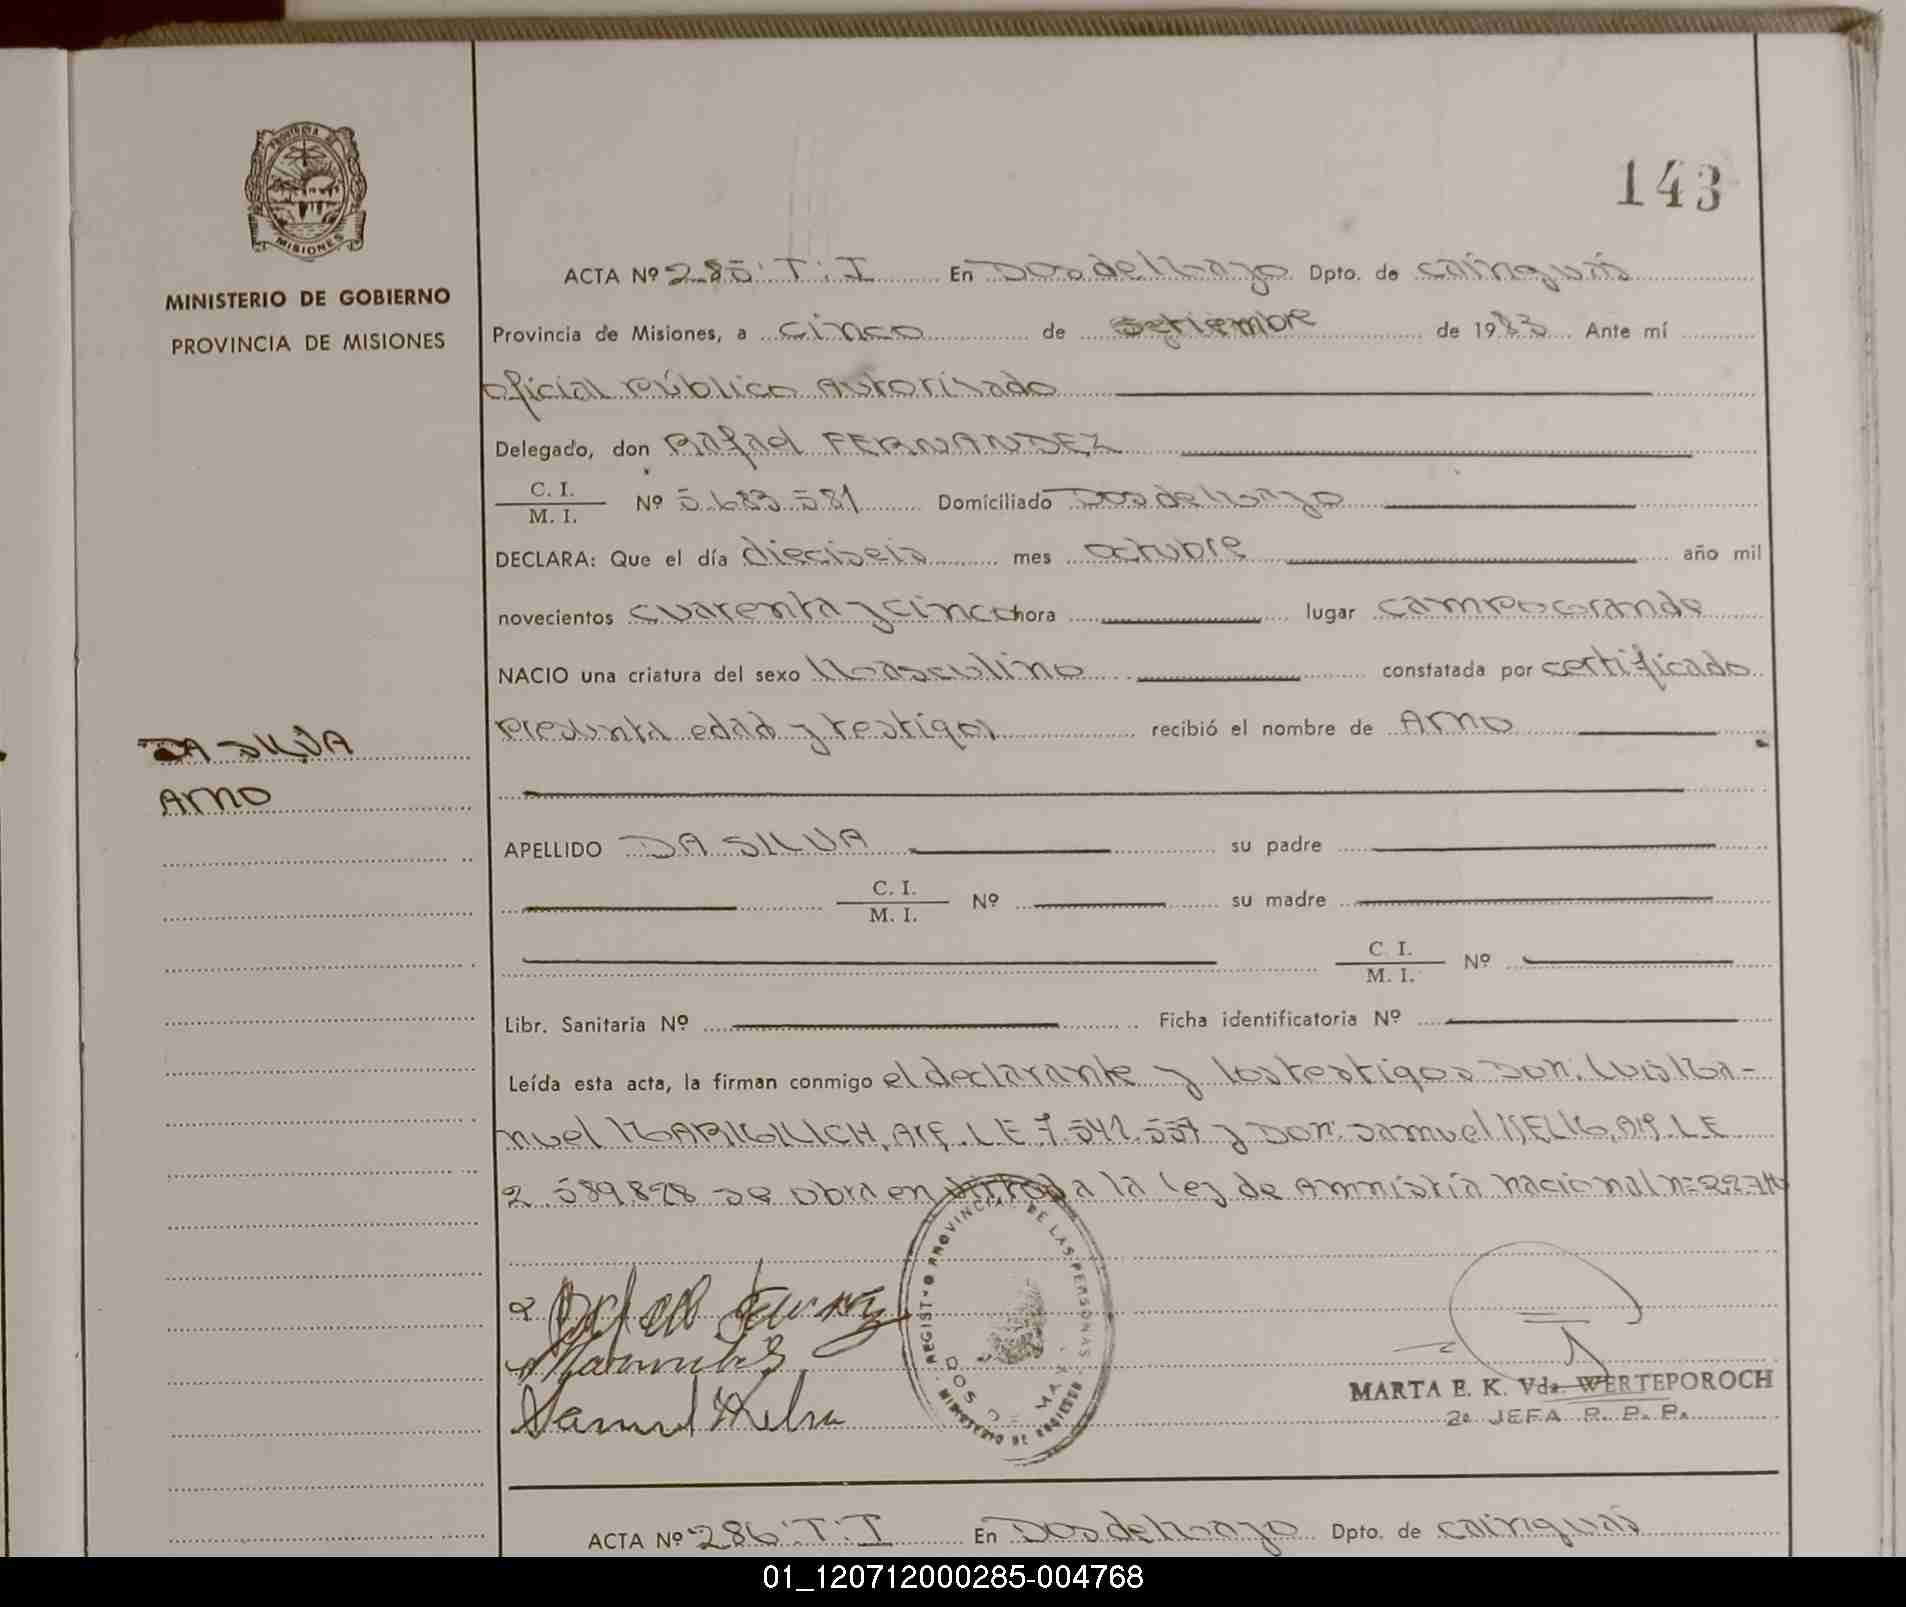 143
MINISTERIO DE GOBIERNO
PROVINCIA DE MISIONES
PROVINCIA DE
MISIONES
DA SILVA
ARNO
ACTA Nº 285 "T: I En Dos de Mayo Dpto. de Cainguás
Provincia de Misiones, a cinco de setiembre de 1983 Ante mí
oficial Público Autorisado
Delegado, don Rafael FERNANDEZ
C. I. / M. I. Nº 5.683.581 Domiciliado Dos de Mayo
DECLARA: Que el día dieciseis mes octubre año mil
novecientos cuarenta y cinco hora lugar campo Grande
NACIO una criatura del sexo Masculino constatada por certificado
Presunta edad y testigos recibió el nombre de Arno
APELLIDO DA SILVA su padre
C. I. / M. I. Nº su madre
C. I. / M. I. Nº
Libr. Sanitaria Nº Ficha identificatoria Nº
Leída esta acta, la firman conmigo el declarante y los testigos Don. Luis Ma-
nuel Arg. L E 7.541.557 y Don. Samuel Arg. L E
2.589.898 se obra en a la Ley de Amnistía nacional
REGISTRO PROVINCIAL DE LAS PERSONAS
Samuel
MARTA E. K. Vda. WERTEPOROCH
2a JEFA R. P. P.
ACTA Nº 286 "T: I En Dos de Mayo Dpto. de Cainguás
01_120712000285-004768